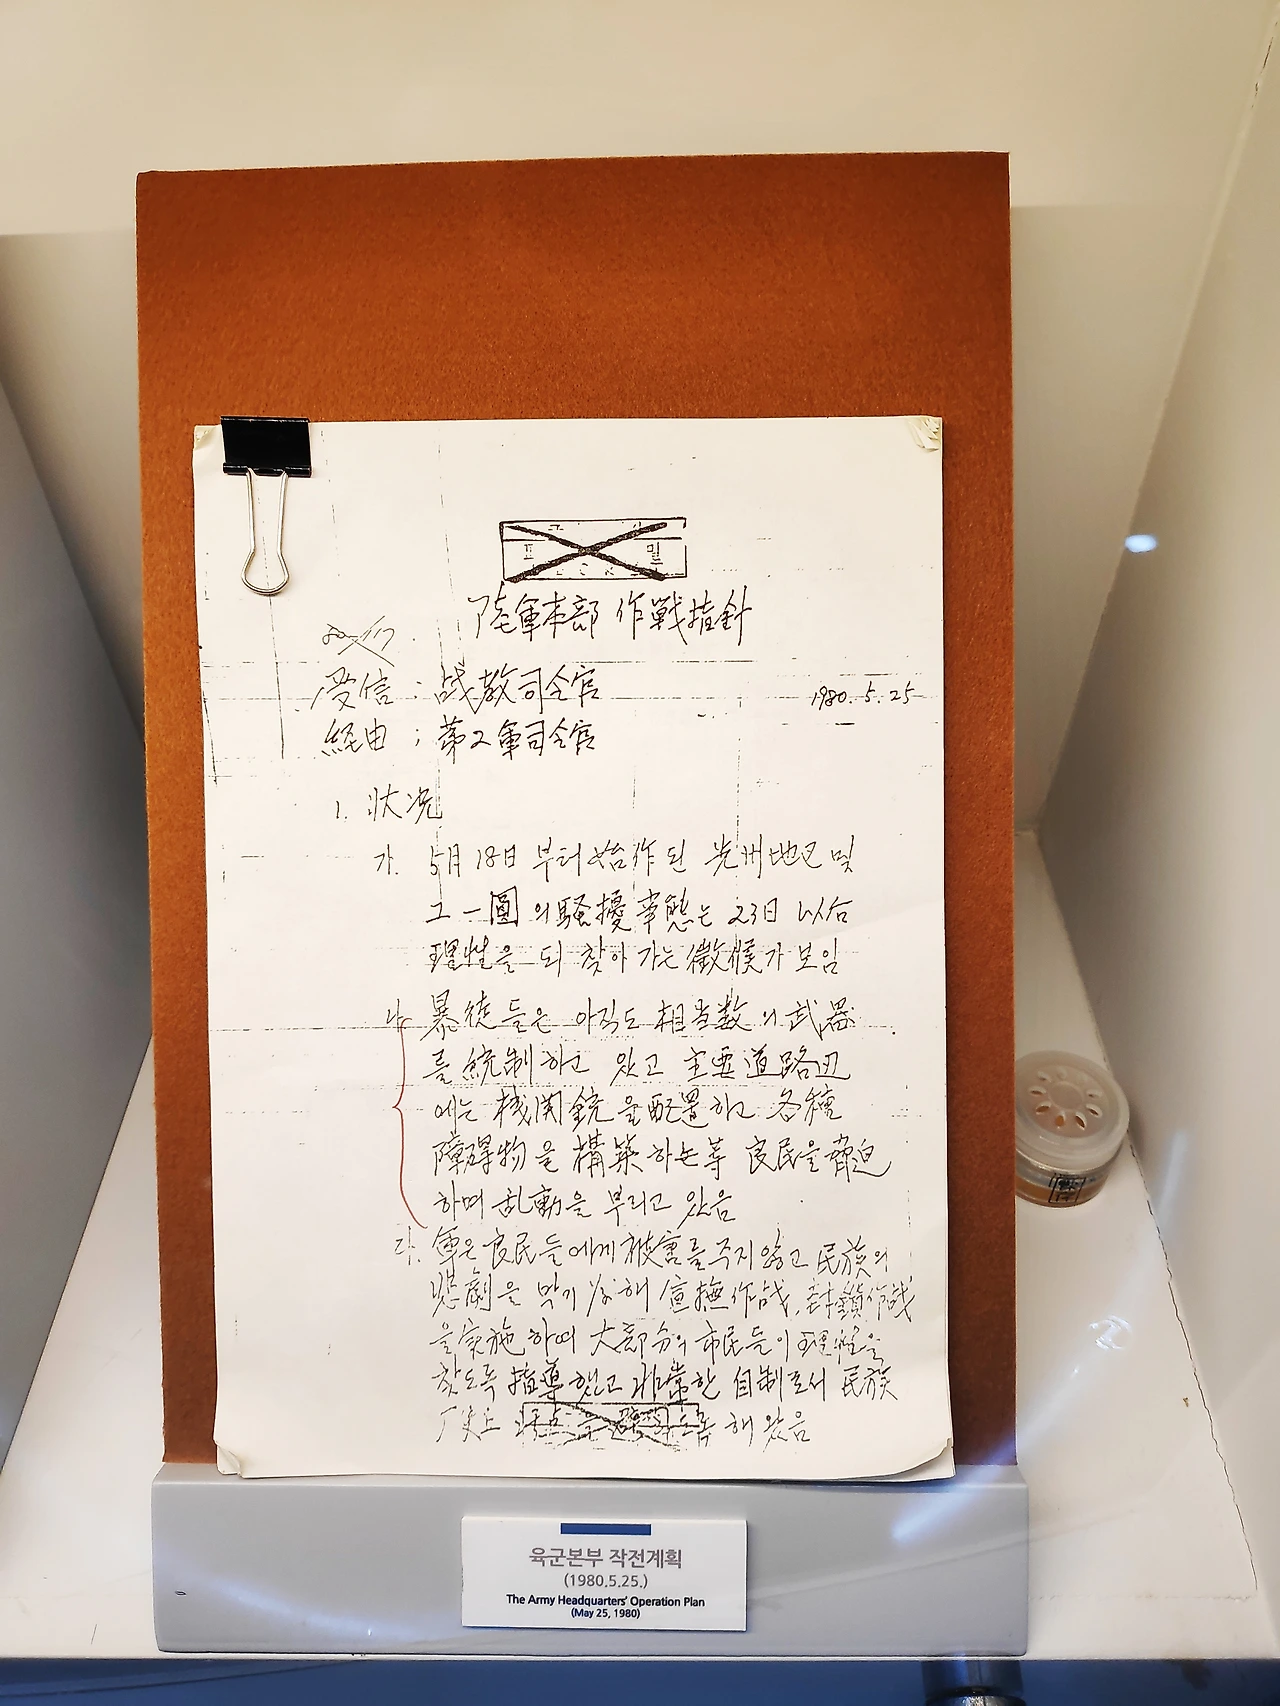 陸軍本部 作戦指針
受信 : 战教司令官
1980. 5. 25
経由 ; 第2軍司令官
1. 状况
가. 5月 18日 부터 始作된 光州地区 및
그 一圓의 騷擾事態는 23日 以后
理性을 되찾아 가는 徵候가 보임
나. 暴徒들은 아직도 相当数의 武器
를 統制하고 있고 主要道路辺
에는 機関銃을 配置하고 各種
障碍物을 構築하는等 良民을 脅迫
하며 乱動을 부리고 있음
다. 軍은 良民들에게 被害를 주지 않고 民族의
悲劇을 막기 爲해 宣撫作战, 封鎖作战
을 实施하며 大部分의 市民들이 理性을
찾도록 指導했고 非常한 自制로서 民族
해 왔음
육군본부 작전계획
(1980.5.25.)
The Army Headquarters' Operation Plan
(May 25, 1980)